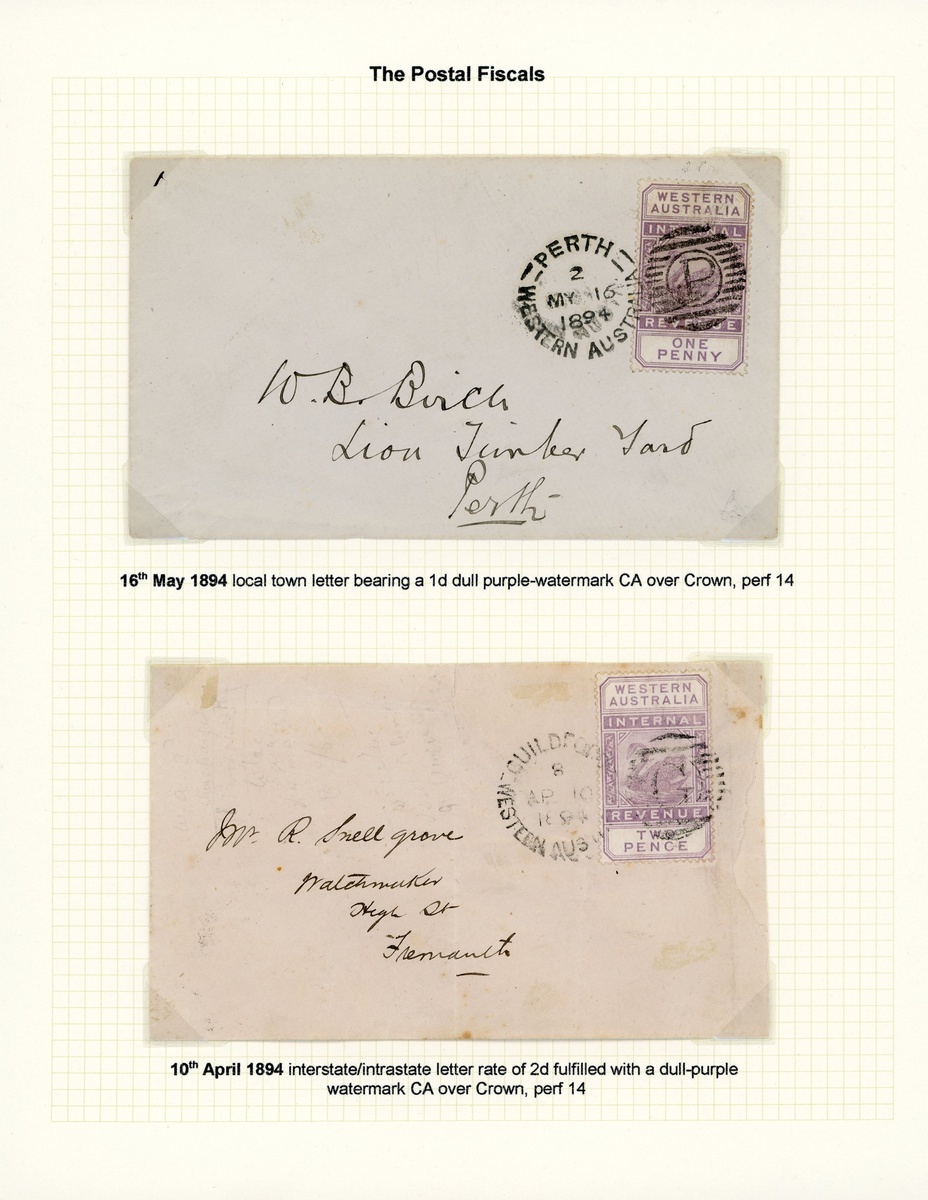 The Postal Fiscals
WESTERN
AUSTRALIA
INTERNAL
REVENUE
ONE
PENNY
PERTH
2
MY 16
1894
WESTERN AUSTRALIA
P
W. B. Birch
Lion Timber Yard
Perth
16th May 1894 local town letter bearing a 1d dull purple-watermark CA over Crown, perf 14
WESTERN
AUSTRALIA
INTERNAL
REVENUE
TWO
PENCE
GUILDFORD
8
AP 10
1894
WESTERN AUS
G
Mr R. Snellgrove
Watchmaker
High St
Fremantle
10th April 1894 interstate/intrastate letter rate of 2d fulfilled with a dull-purple
watermark CA over Crown, perf 14